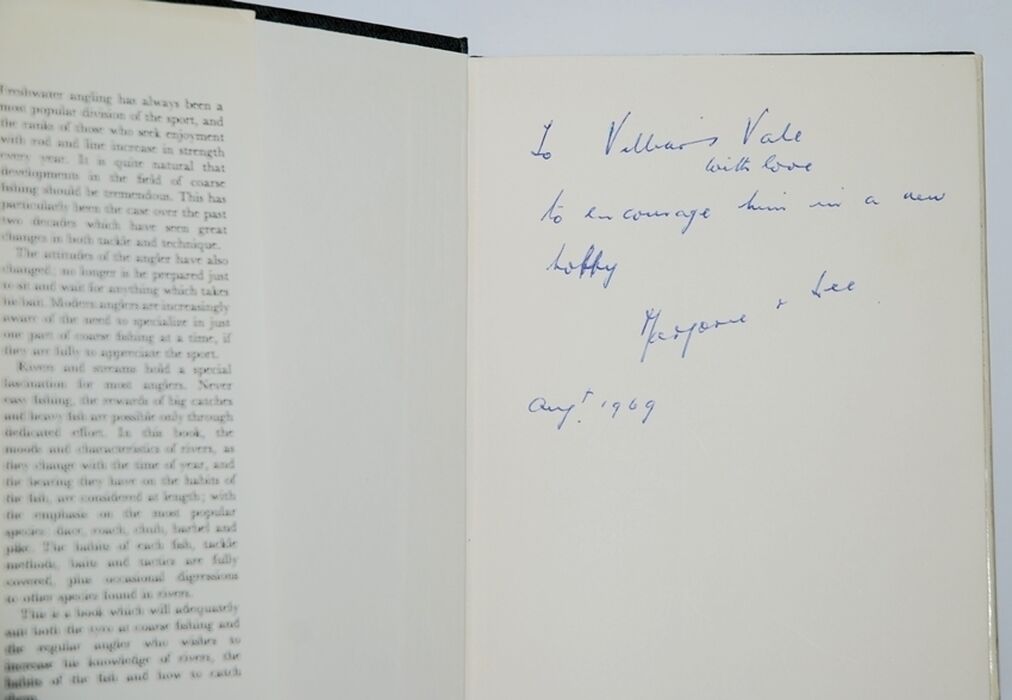 Freshwater angling has always been a
most popular division of the sport, and
the ranks of those who seek enjoyment
with rod and line increase in strength
every year. It is quite natural that
developments in the field of coarse
fishing should be tremendous. This has
particularly been the case over the past
two decades which have seen great
changes in both tackle and technique.
The attitudes of the angler have also
changed; no longer is he prepared just
to sit and wait for anything which takes
his bait. Modern anglers are increasingly
aware of the need to specialize in just
one part of coarse fishing at a time, if
they are fully to appreciate the sport.
Rivers and streams hold a special
fascination for most anglers. Never
easy fishing, the rewards of big catches
and heavy fish are possible only through
dedicated effort. In this book, the
moods and characteristics of rivers, as
they change with the time of year, and
the bearing they have on the habits of
the fish, are considered at length; with
the emphasis on the most popular
species: dace, roach, chub, barbel and
pike. The habits of each fish, tackle
methods, baits and tactics are fully
covered, plus occasional digressions
to other species found in rivers.
This is a book which will adequately
suit both the tyro at coarse fishing and
the regular angler who wishes to
increase his knowledge of rivers, the
habits of the fish and how to catch
them.
To Vale
with love
to encourage him in a new
hobby
Marjorie + Lee
Augt. 1969